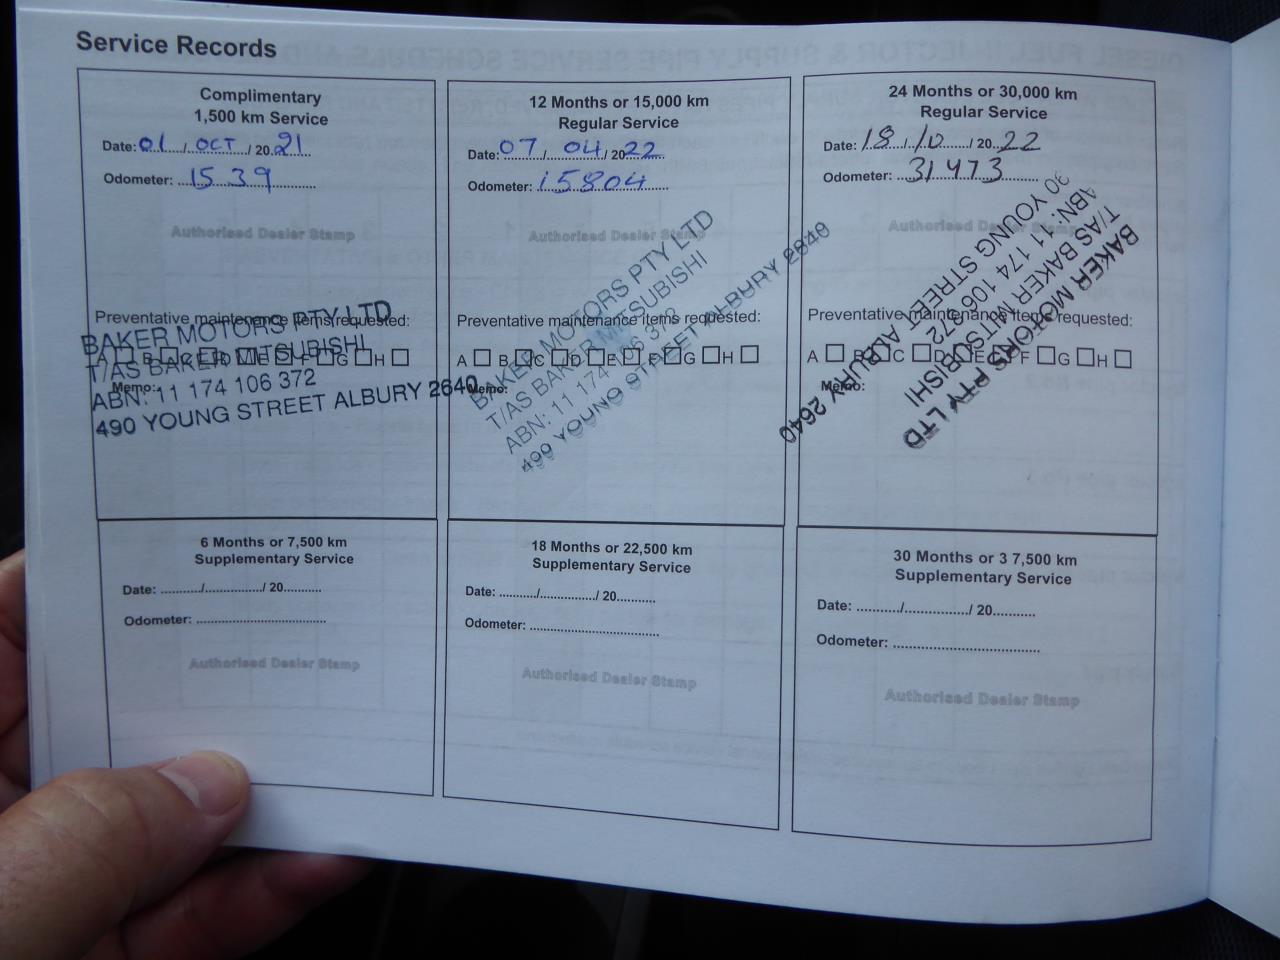 Service Records
Complimentary
1,500 km Service
Date: 01 / OCT / 20 21
Odometer: 1539
Authorised Dealer Stamp
Preventative maintenance items requested:
A B C D E F G H
Memo:
BAKER MOTORS PTY LTD
T/AS BAKER MITSUBISHI
ABN: 11 174 106 372
490 YOUNG STREET ALBURY 2640
12 Months or 15,000 km
Regular Service
Date: 07 / 04 / 20 22
Odometer: 15804
Authorised Dealer Stamp
Preventative maintenance items requested:
A B C D E F G H
Memo:
BAKER MOTORS PTY LTD
T/AS BAKER MITSUBISHI
ABN: 11 174 106 372
490 YOUNG STREET ALBURY 2640
24 Months or 30,000 km
Regular Service
Date: 18 / 10 / 20 22
Odometer: 31473
Authorised Dealer Stamp
Preventative maintenance items requested:
A B C D E F G H
Memo:
BAKER MOTORS PTY LTD
T/AS BAKER MITSUBISHI
ABN: 11 174 106 372
90 YOUNG STREET ALBURY 2640
6 Months or 7,500 km
Supplementary Service
Date: ........../............../ 20..........
Odometer: ..................................
Authorised Dealer Stamp
18 Months or 22,500 km
Supplementary Service
Date: ........../............../ 20..........
Odometer: ..................................
Authorised Dealer Stamp
30 Months or 3 7,500 km
Supplementary Service
Date: .........../................/ 20...........
Odometer: ......................................
Authorised Dealer Stamp